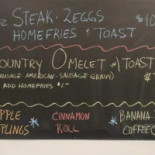 STEAK · 2 EGGS $10
HOMEFRIES + TOAST
COUNTRY OMELET w/ TOAST
(SAUSAGE · AMERICAN · SAUSAGE GRAVY) $
ADD HOMEFRIES $1
APPLE CINNAMON BANANA
PLINGS ROLL COFFEE